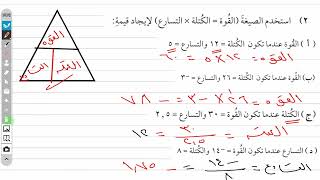 ٢) استخدم الصيغةَ (القوة = الكتلة × التسارع) لإيجاد قيمةِ:
القوة
الكتلة
(أ) القوة عندما تكون الكتلة = ١٢ والتسارع = ٥
القوة = ١٢ × ٥ =
(ب) القوة عندما تكون الكتلة = ٢٦ والتسارع = -٣
القوة = ٢٦ × -٣ = -٧٨
(ج) الكتلة عندما تكون القوة = ٣٠ والتسارع = ٢,٥
= ٣٠ / ٢,٥ = ١٢
(د) التسارع عندما تكون القوة = -١٤ والكتلة = ٨
التسارع = -١٤ / ٨ = -١,٧٥